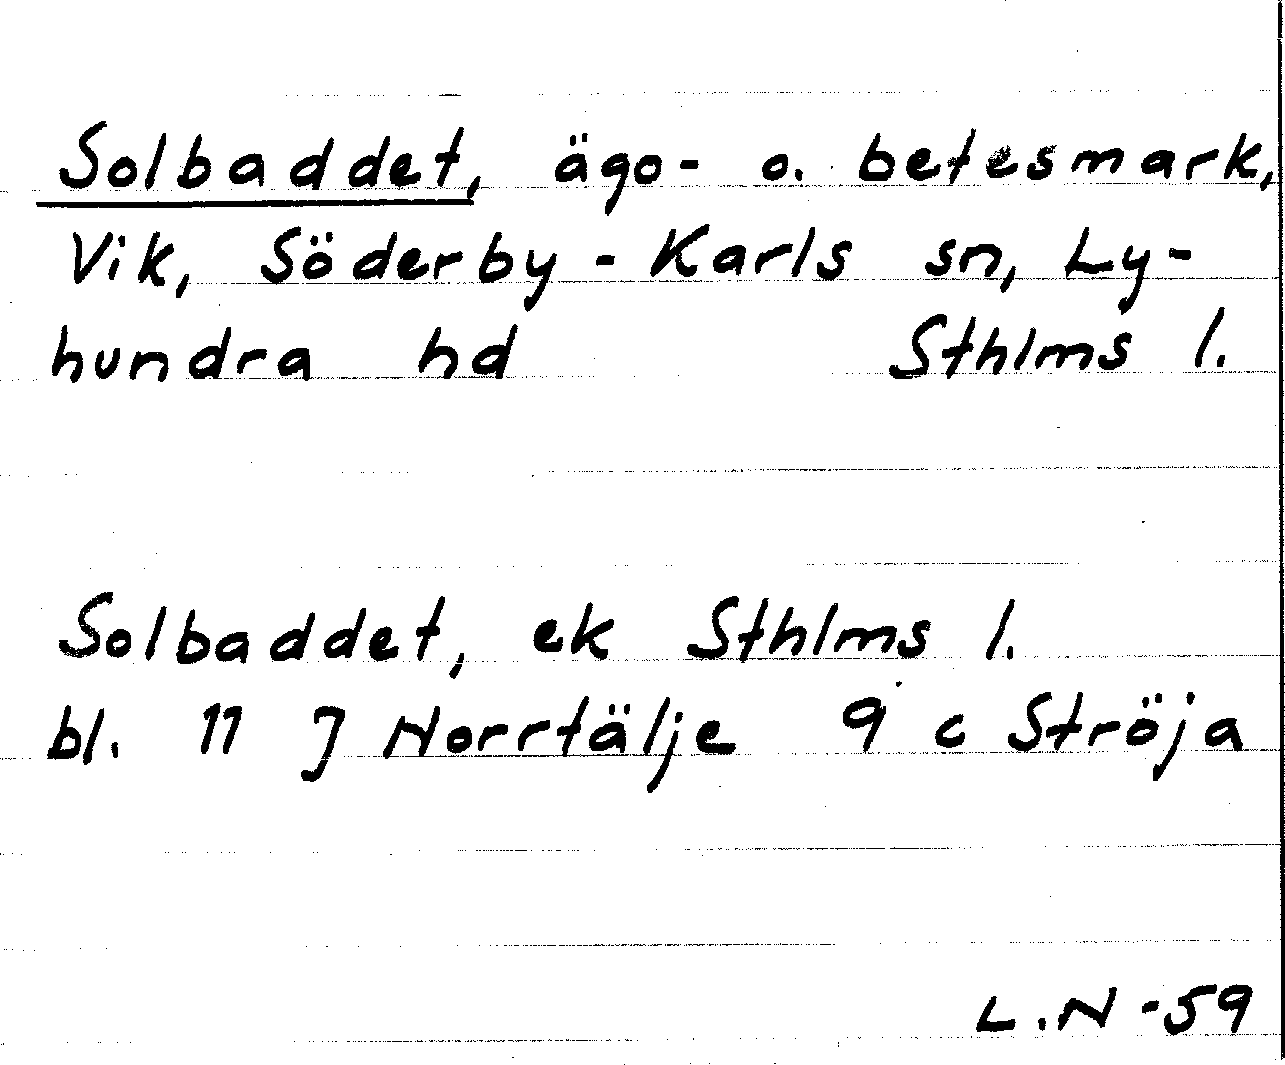 Solbaddet, ägo- o. betesmark,
Vik, Söderby - Karls sn, Ly-
hundra hd Sthlms l.
Solbaddet, ek Sthlms l.
bl. 11 J Norrtälje 9 c Ströja
L.N -59